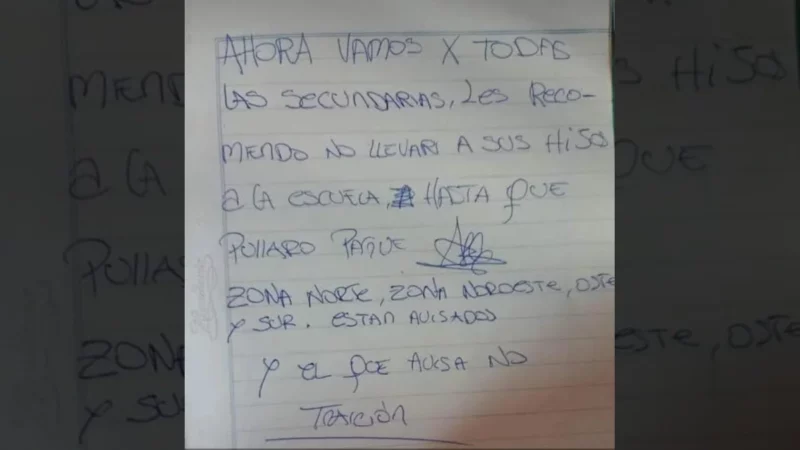 AHORA VAMOS X TODAS
LAS SECUNDARIAS, LES RECO-
MENDO NO LLEVAR A SUS HIJOS
a LA ESCUELA, HASTA QUE
PULLARO PAGUE
ZONA NORTE, ZONA NOROESTE, OSTE
Y SUR. ESTAN AVISADOS
Y EL QUE AVISA NO
TRAICIÓN